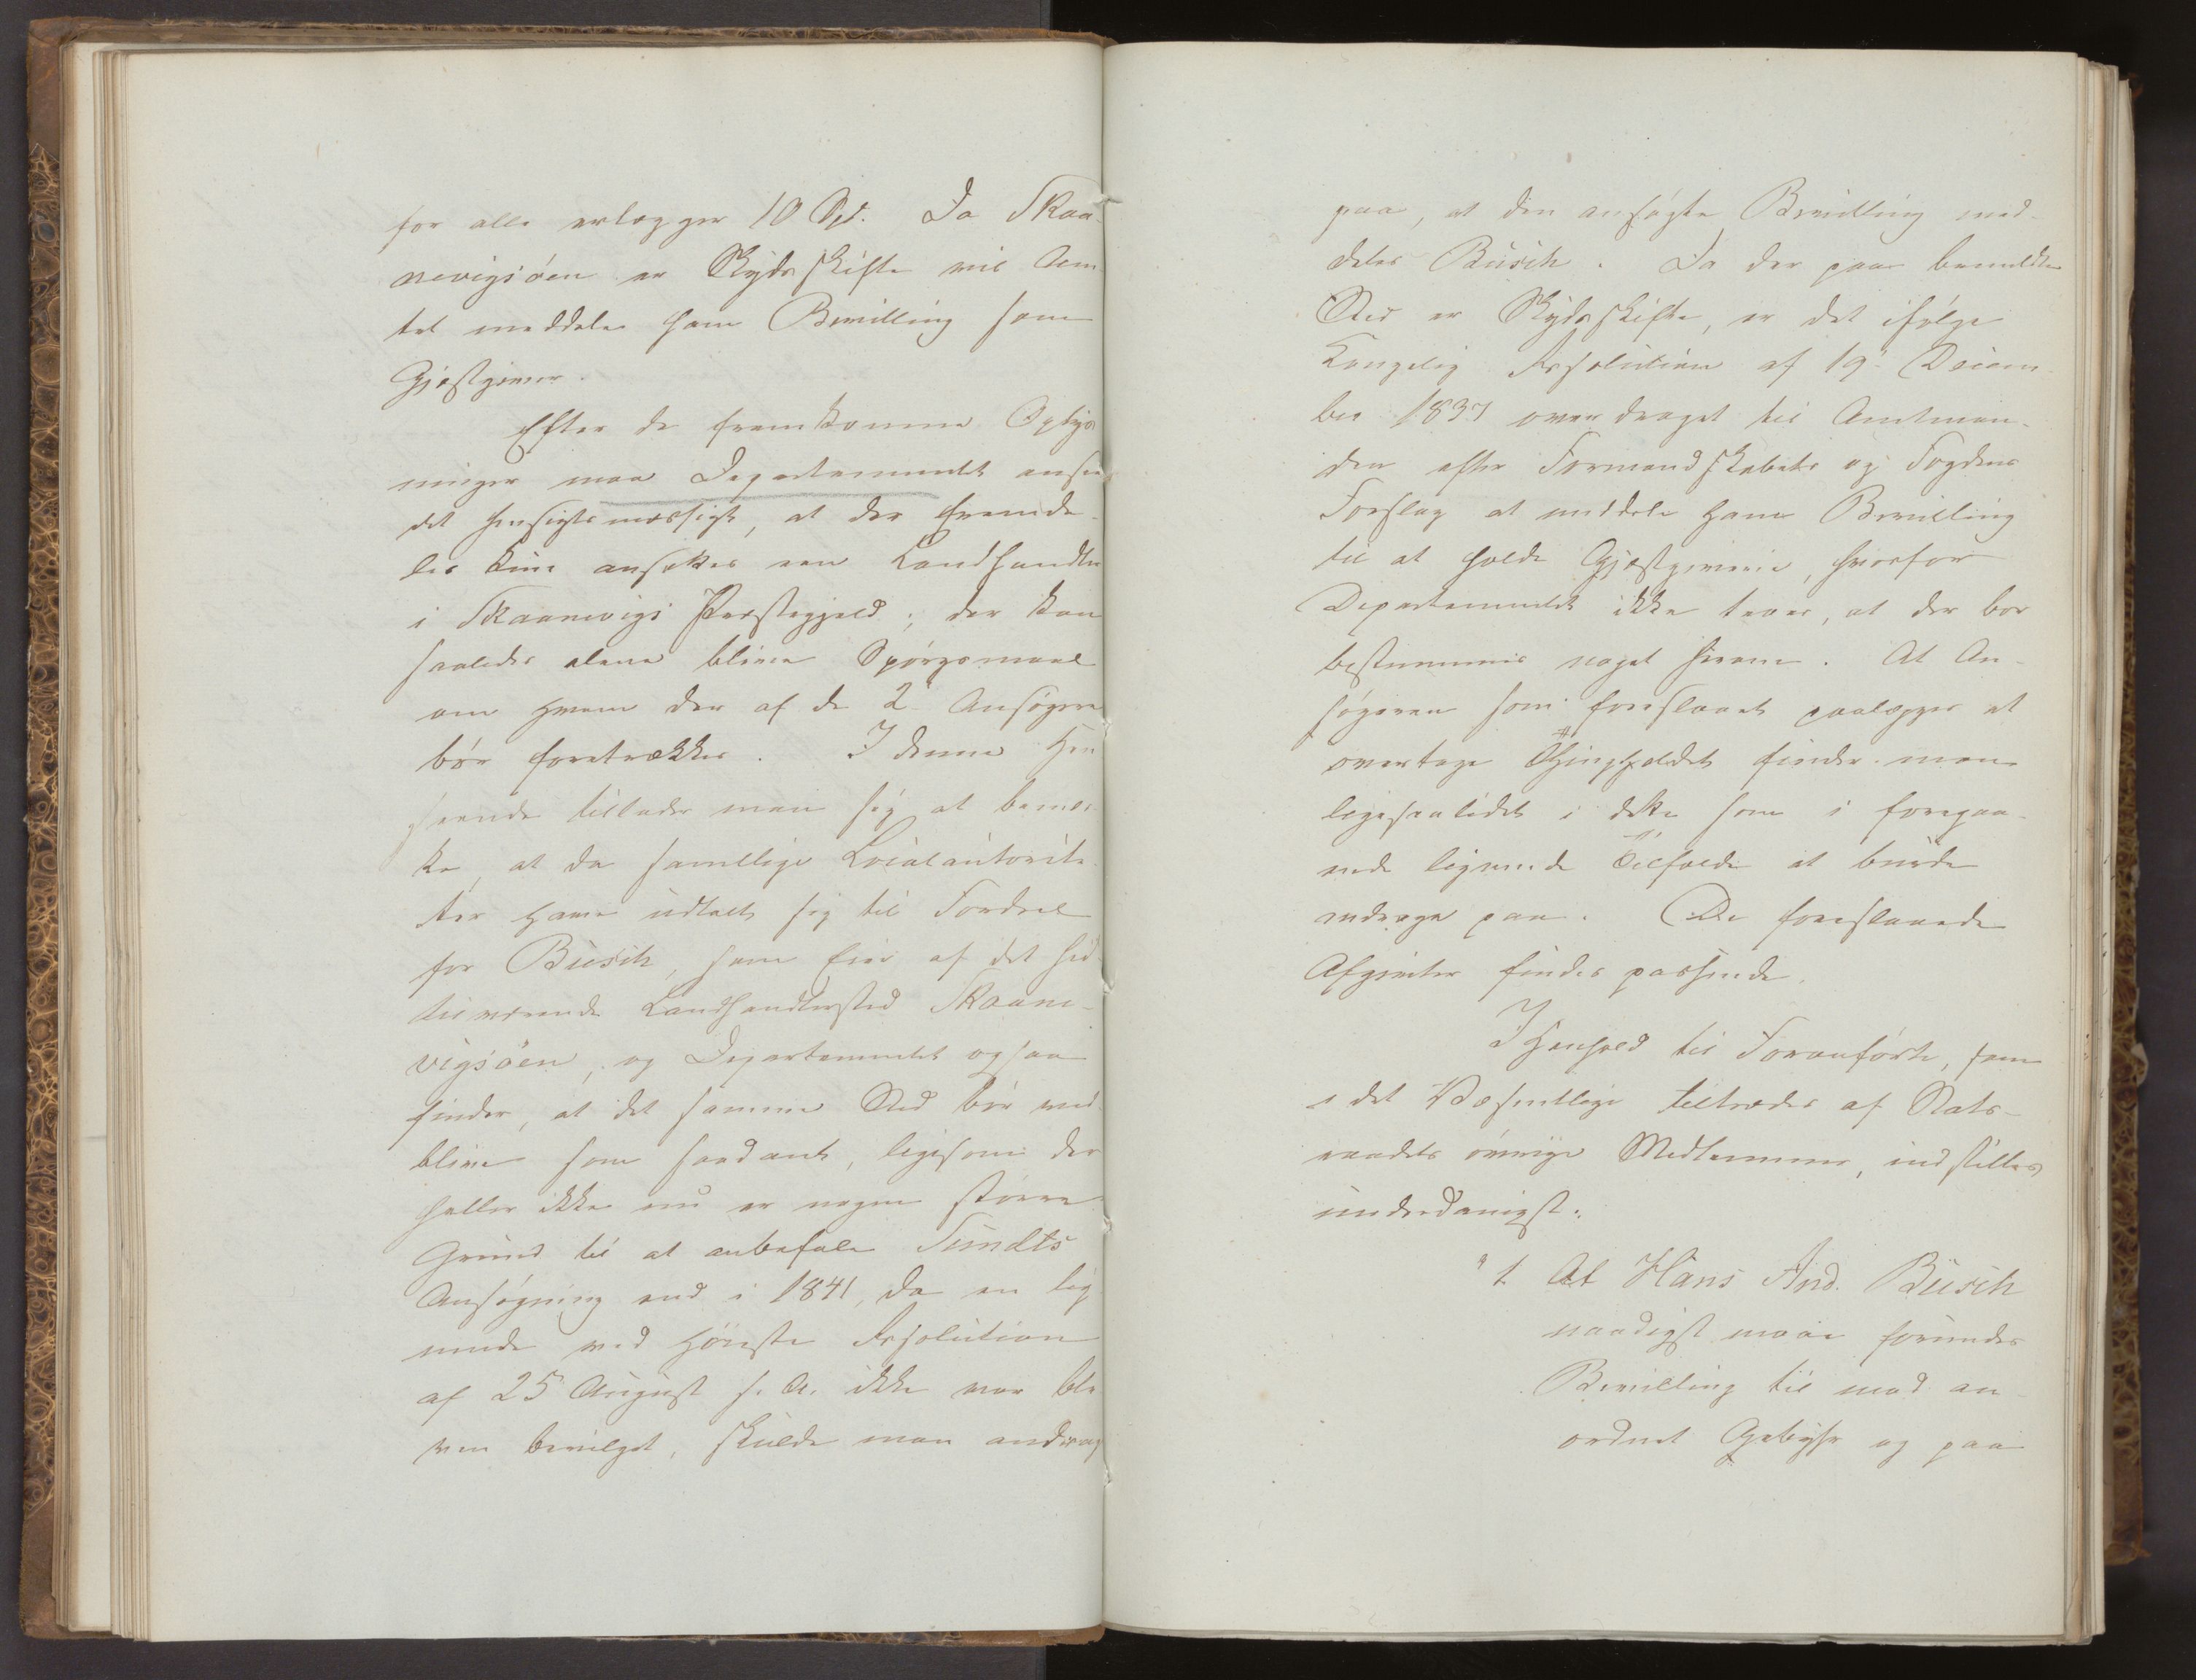 for alle erlægger 10 Spd. Da Skaa-
nevigsøen er Skydsskifte vil Am
tet meddele ham Bevilling som
Gjæstgiver.
Efter de fremkomne Oplys
ninger maa Departementet ansee
det hensigtsmæssigt, at der fremde-
les kun ansættes een Landhandler
i Skaanevigs Præstegjeld; der kan
saaledes alene blive Spørgsmaal
om hvem der af de 2 Ansøgere
bør foretrækkes. I denne Hen
seende tillader man sig at bemær
ke, at da samtlige Localautorite
ter have udtalt sig til Fordeel
for Busch, som Eier af det hid
tilværende Landhandlersted Skaane-
vigsøen, og Departementet ogsaa
finder, at det samme Sted bør ved
blive som saadant, ligesom der
heller ikke nu er nogen større
Grund til at anbefale Sundts
Ansøgning end i 1841, da en lig
nende ved Høieste Resolution
af 25 August s. A. ikke var ble
ven bevilget, skulde man andrage
paa, at den ansøgte Bevilling med-
deles Busch. Da der paa bemeldte
Sted er Skydsskifte, er det ifølge
Kongelig Resolution af 19 Decem
ber 1837 overdraget til Amtman-
den efter Formandskabets og Fogdens
Forslag at meddele ham Bevilling
til at holde Gjæstgiverie, hvorfor
Departementet ikke troer, at der bør
bestemmes noget herom. At An-
søgeren som foreslaaet paalægges at
overtage Thingholdet finder man
ligesaalidet i dette som i foregaa-
ende lignende Tilfælde at burde
andrage paa. De foreslaaede
Afgivter findes passende.
I Henhold til Foranførte, som
i det Væsentlige tiltrædes af Stats-
raadets øvrige Medlemmer, indstilles
underdanigst:
"1. At Hans And. Busch
naadigst maae forundes
Bevilling til mod an-
ordnet Gebyhr og paa